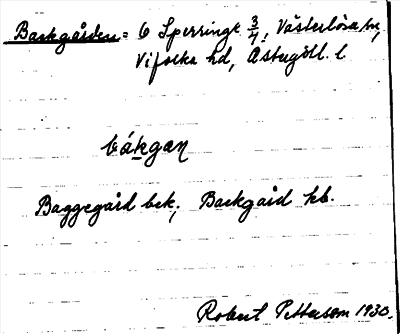 Backgården = 6 Sperringe 3/4, Västerlösa sn,
Vifolka hd, Östergötl. l.
bákgan
Baggegård bek; Backgård kb.
Robert Pettersson 1930.